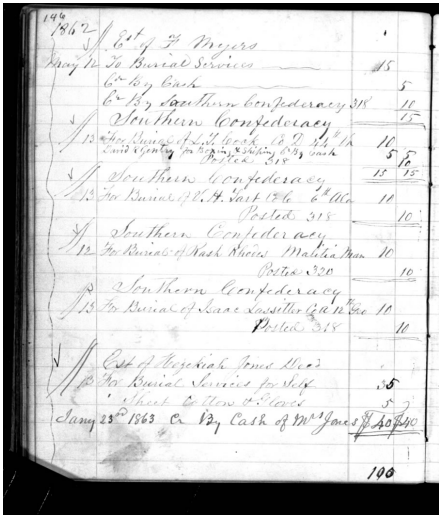 146
1862
Est of F Myers
May 12 To Burial Services 15
Cr By Cash 5
Cr By Southern Confederacy 318 10
Southern Confederacy 15
13 For Burial of S. T. Cook Co D 44th 10
For Boxing & Shiping Cr By Cash 5 5
Posted 318 10
Southern Confederacy 15 15
13 For Burial of V. H. Tart 6th Ala 10
Posted 318 10
Southern Confederacy
12 For Burial of Kash Rhodes Militia Man 10
Posted 320 10
Southern Confederacy
13 For Burial of Isaac Lassitter Co A 10
Posted 318 10
Est of Hezekiah Jones Decd
13 For Burial Services for Self 35
Sheet Cotton & Gloves 5
Jany 23rd 1863 Cr By Cash of Mrs Jones $40 $40
190